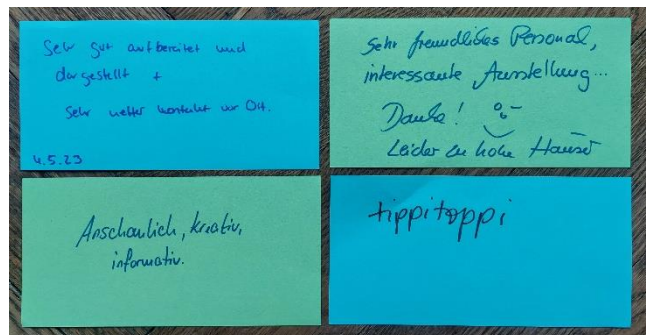 Sehr gut aufbereitet und
dargestellt +
Sehr netter Kontakt vor Ort.
4.5.23
Sehr freundliches Personal,
interessante Ausstellung...
Danke!
Leider zu hohe Häuser
Anschaulich, kreativ,
informativ.
tippitoppi